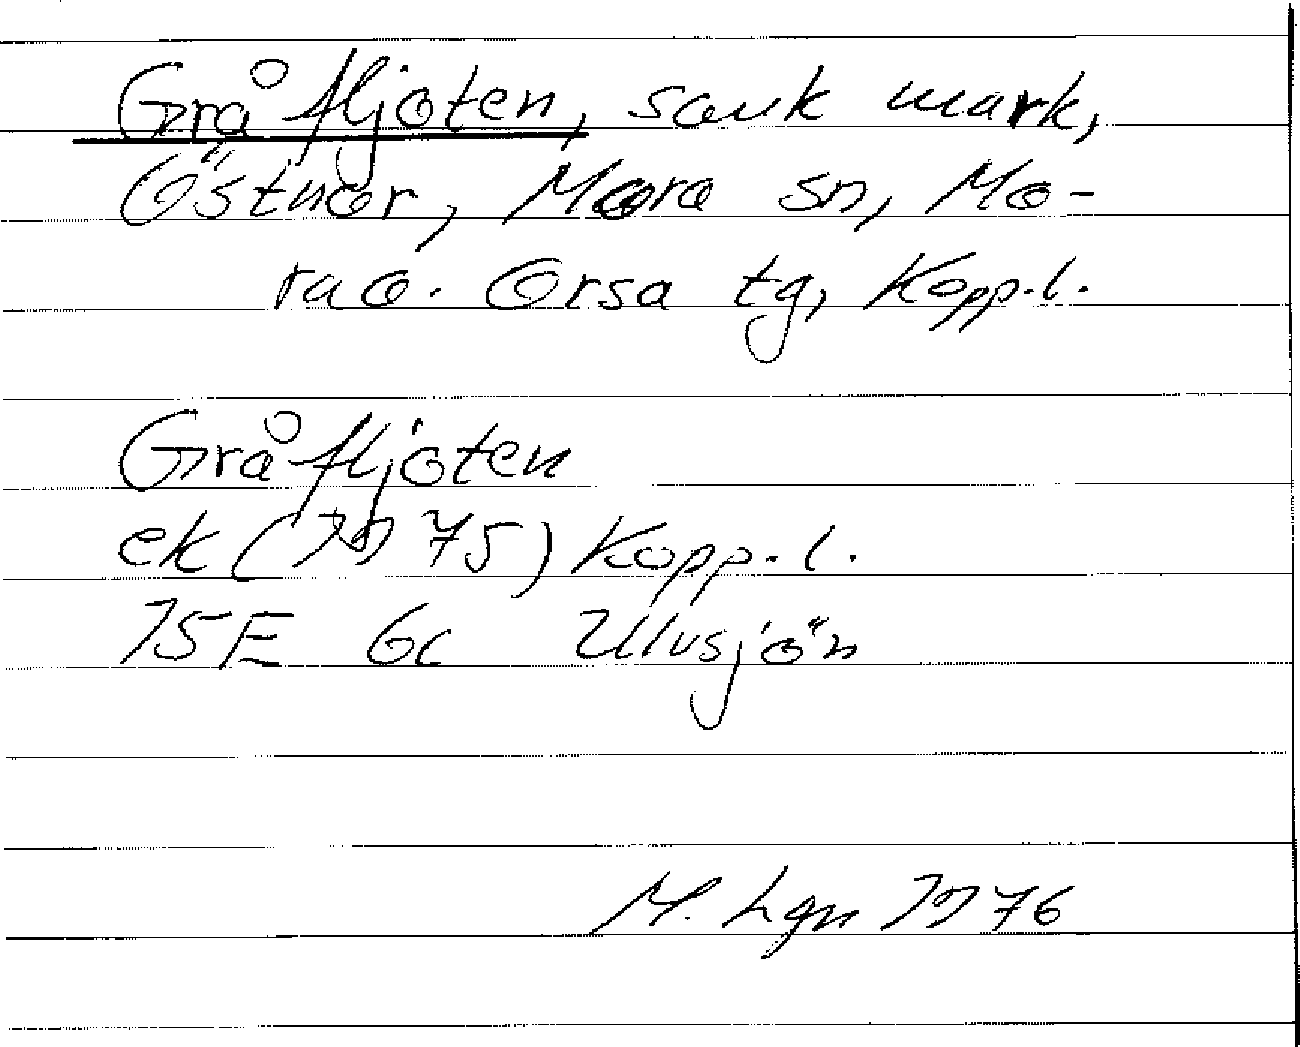 Gråfljoten, sank mark,
Östnor, Mora sn, Mo-
ra o. Orsa tg, Kopp.l.
Gråfljoten
ek (1975) Kopp.l.
15E 6c Ulvsjön
M. Lgn 1976